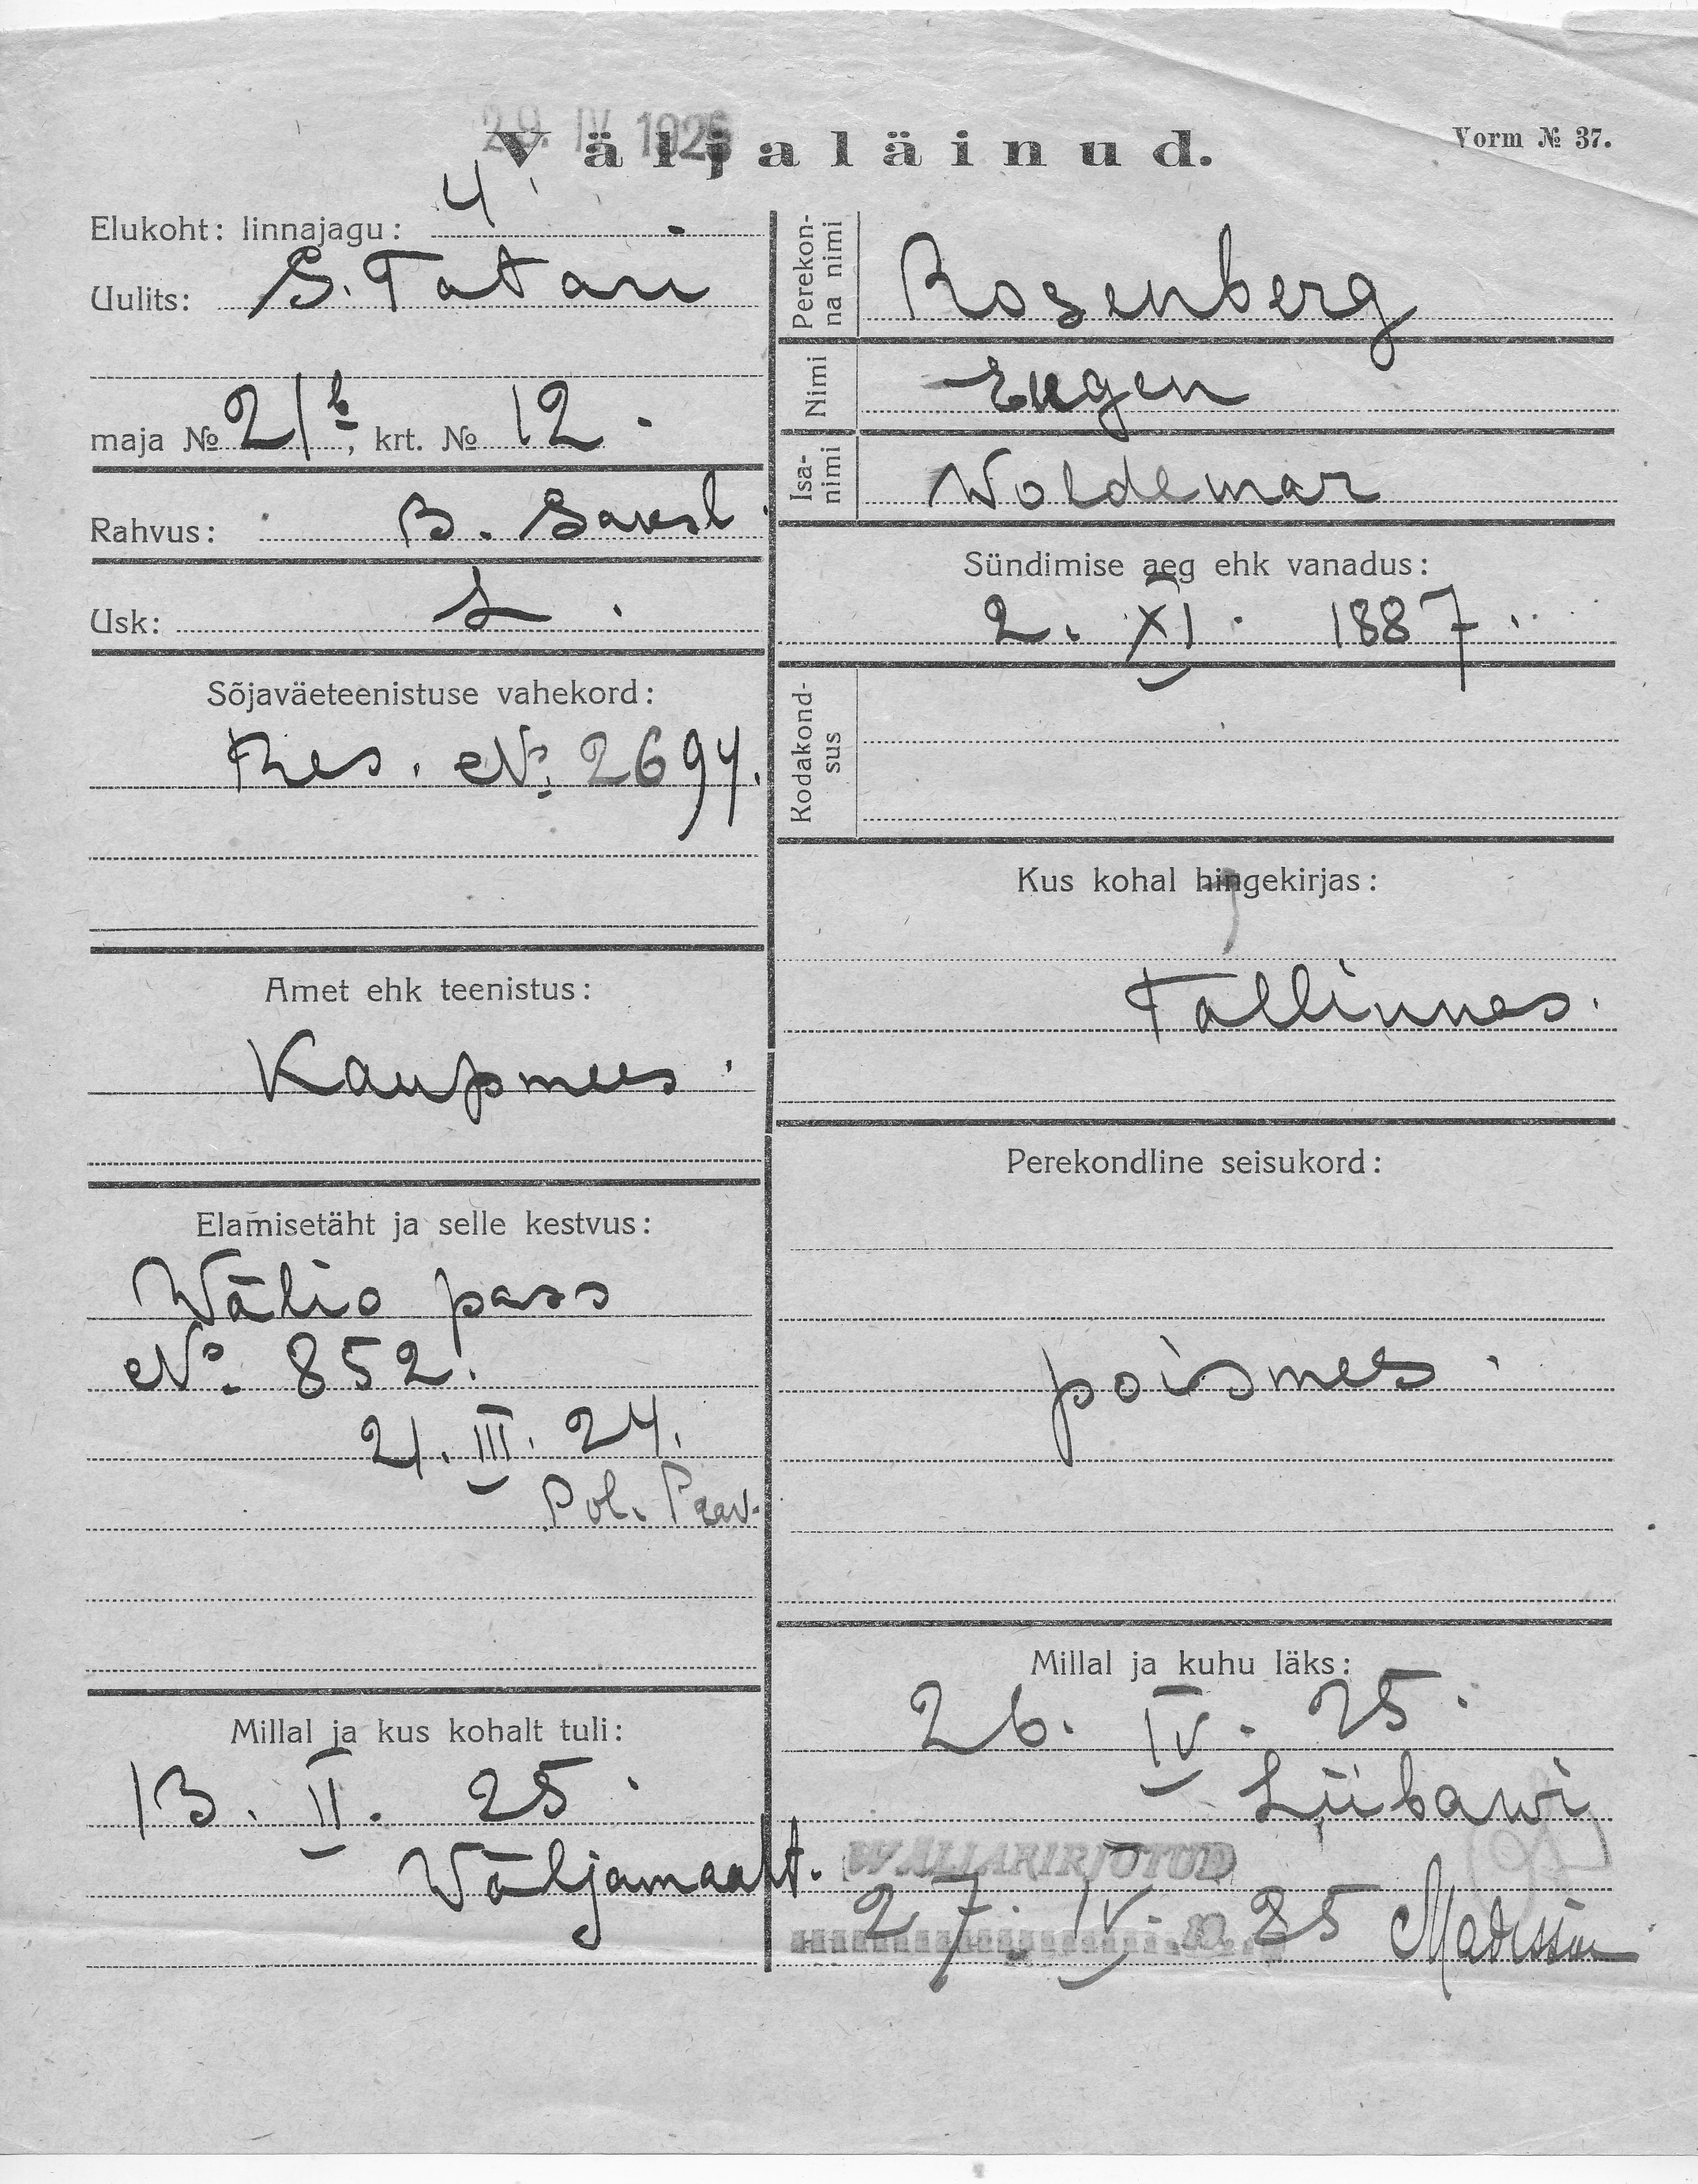 29. IV 1925
Väljaläinud.
Vorm № 37.
Elukoht: linnajagu: 4
Uulits: S. Tatari
maja № 21b, krt. № 12.
Rahvus: B. Saksl.
Usk: L.
Sõjaväeteenistuse vahekord:
Res. №. 2694.
Amet ehk teenistus:
Kaupmees.
Elamisetäht ja selle kestvus:
Wälis pass
№. 852.
21. III. 24.
Pol. Peav.
Millal ja kus kohalt tuli:
13. II. 25.
Väljamaalt.
Perekonna nimi
Rosenberg
Nimi
Eugen
Isanimi
Woldemar
Sündimise aeg ehk vanadus:
2. XI. 1887.
Kodakondsus
Kus kohal hingekirjas:
Tallinnas.
Perekondline seisukord:
poismes.
Millal ja kuhu läks:
26. IV. 25.
Liibawi
WÄLJAKIRJOTUD
27. IV. 25 Madisson